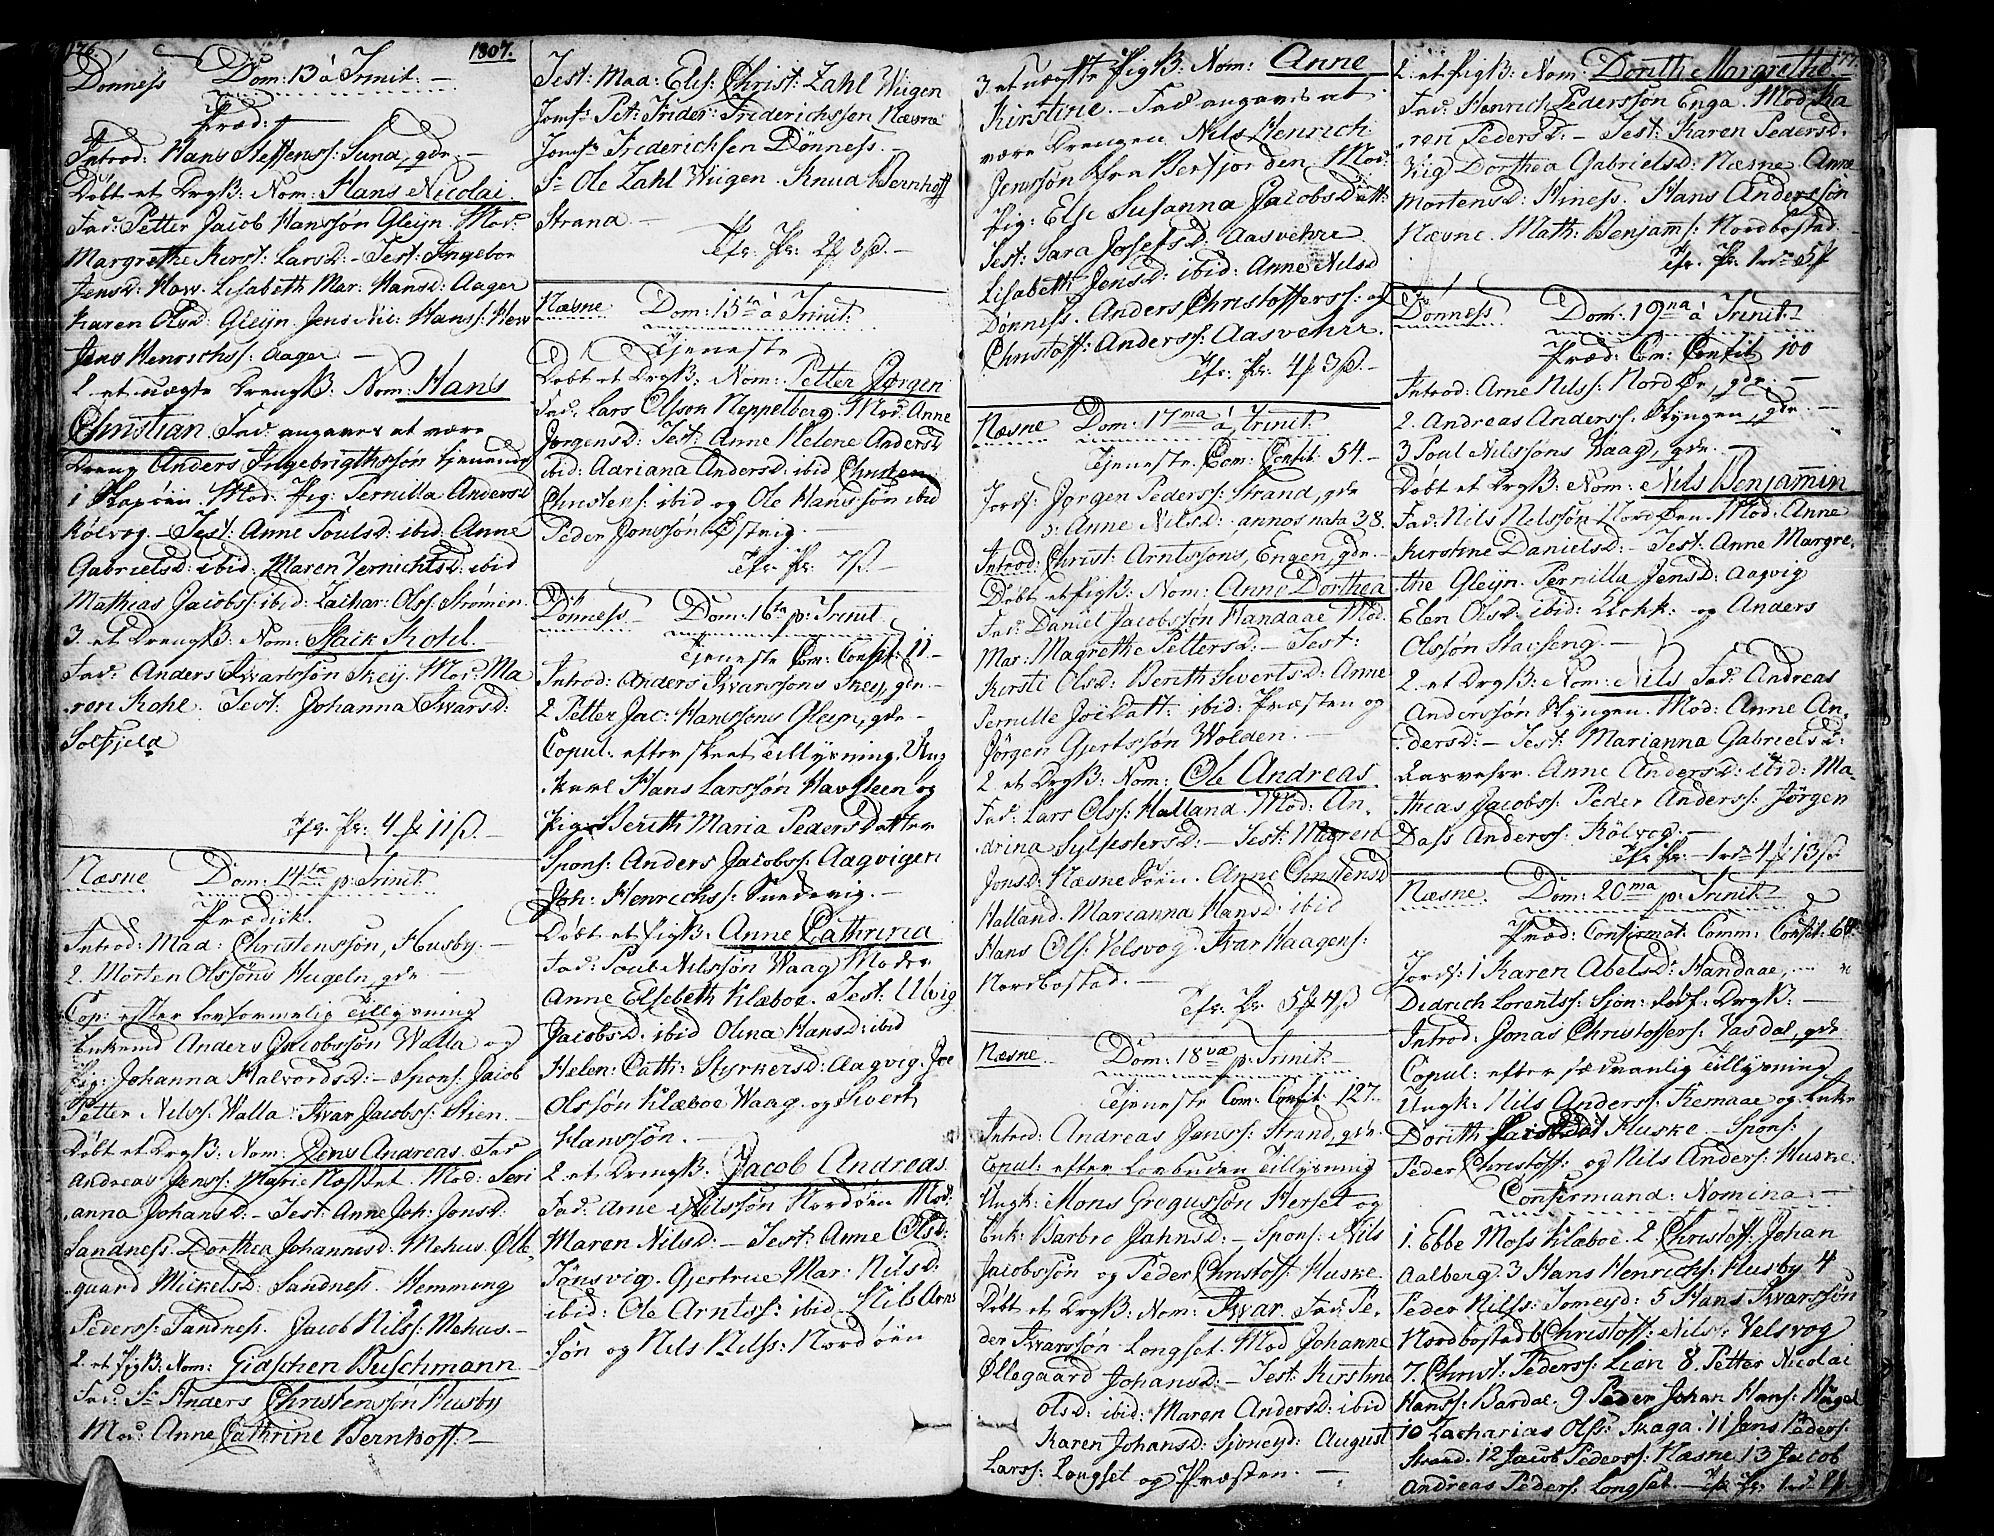 176. 1807.
Dønness Dom: 13 à Trinit: –
Præd: –
Introd: Hans Steffenss: Sund, gdr. –
Døbt et DrgB: Nom: Hans Nicolai.
Fad: Petter Jacob Hanssøn Gleijn. Mod:
Margrethe Kirst: Larsd: – Test: Ingebor
Jensd: How. Lisabeth Mar: Hansd: Aager
Karen Olsd: Gleijn. Jens Nic: Hanss: How
Jens Henrichss: Aager –
2 et uægte DrengB: Nom: Hans
Christian. Fad: angaves at være
Dreng Anders Ingebrigthssøn tjenende
i Skagøen. Mod: Pig: Pernilla Andersd
Kølvog – Test: Anne Poulsd: ibid: Anne
Gabrielsd: ibid: Maren Jernichtsd: ibid
Mathias Jacobss: ibid: Zachar: Olss: Strømen.
3. et DrengB: Nom: Isaik Kohl.
Fad: Anders Ivarssøn Skeij. Mod: Ma
ren Kohl. Test: Johanna Ivarsd:
Solfjeld
Tfr. Pr: 4 f 11 ß. –
Næsne Dom: 14ta p: Trinit:
Prædik:
Introd: Mad: Christenssøn, Husby. –
2. Morten Olssøns Hugeln, gdr. –
Cop: efter lovformelig Tillysning
Enkemd Anders Jacobssøn Walla og
Pig: Johanna Halvordsd: – Spons: Jacob
Petter Nilss: Walla: Ivar Jacobss: Stien. –
Døbt et DrgB: Nom: Jens Andreas. Fad
Andreas Jenss: Marie Nasset. Mod: Seri
anna Johansd: – Test: Anne Joh: Jonsd:
Sandness. Dorthea Johannesd: Mehus. Ølle
gaard Mickelsd: Sandness. Hemming
Pederss: Sandness. Jacob Nilss: Mehus. –
2. et PigB: Nom: Gidschen Buschmann
Fad: Sr Anders Christenssøn Husby
Mod: Anne Cathrine Bernhoff: –
Test: Mad: Elis: Christ: Zahl Wiigen
Jomfr Pet: Frider: Friderichssen Næsne
Jomfr Friderichsen Dønness. –
Sr Ole Zahl Wiigen. Knud Bernhoff
Strand. –
Tfr. Pr: 2 f 3 ß. –
Næsne Dom: 15ta à Trinit:
Tjeneste
Døbt et DrgB: Nom: Petter Jørgen
Fad: Lars Olsson Neppelberg. Mod: Anne
Jørgensd: Test: Anne Helene Andersd
ibid: Adriana Andersd: ibid Christen
Christens: ibid og Ole Hanssøn ibid
Peder Jonssøn Østvig. –
Tfr. Pr. 7 ß –
Dønness Dom: 16ta p: Trinit:
Tjeneste Com: Confit: 11. –
Introd: Anders Ivarssøns Skeij, gdr. –
2 Petter Jac: Hanssøns Gleijn, gdr –
Copul: efter skeet Tillysning. Ung
Karl Hans Larssøn Havsteen og
Pig: Berith Maria Peders Datter
Spons: Anders Jacobss: Aagvigen
Joh: Henrichss: Sundsvig. –
Døbt et PigB: Anne Cathrina
Fad: Poul Nilssøn Waag Moder
Anne Elsebeth Klæboe. Test: Ulvig
Jacobsd: ibid Olina Hansd: ibid
Helen: Cath: Styrkersd: Aagvig. Joe
Olssøn Klæboe Waag. og Sivert
Hanssøn. –
2 et DrengB. Jacob Andreas
Fad: Arne Nilssøn Nordøen Mod:
Maren Nilsd: – Test: Anne Olsd:
Tønsvig. Gjertrue Mar: Nilsd:
ibid: Ole Arntss: ibid. Nils Arns
søn og Nils Nilss: Nordøen
3 et uægte PigB: Nom: Anne
Kirstine. – Fad angaves at
være Drengen Nils Henrich
Jenssøn fra Berfjorden. Mod:
Pig: Else Susanna Jacobs Datt:
Test: Sara Josefsd: Aasvehrr
Lisabeth Jensd: ibid: Anne Nilsd
Dønness. Anders Christofferss: og
Christoff: Anderss: Aasvehrr.
Tfr. Pr. 4 f 3 ß. –
Næsne Dom: 17ma à Trinit:
Tjeneste. Com: Confit: 54. –
Jordf: Jørgen Pederss: Strand, gdr
: Anne Nilsd: annos nata 38.
Introd: Christ: Arntssøns, Engen, gdr. –
Døbt et PigB: Nom: Anne Dorthea
Fad: Daniel Jacobssøn Handaae Mod:
Mar: Magrethe Pettersd: – Test:
Kirsti Olsd: Berith Sivertsd: Anne
Pernille Joe Datt: ibid: Præsten og
Jørgen Gjertssøn Wolden. –
2 et DrgB: Nom: Ole Andreas
Fad: Lars Olss: Halland. Mod: An-
drina Sylfestersd: – Test: Maren
Jonsd: Næsne Søen. Anne Christensd
Halland. Marianna Hansd: ibid
Hans Olss: Velsvog. Ivar Haagens:
Nordbostad. –
Tfr. Pr. 5 f 4 ß
Næsne. Dom: 18va p: Trinit: –
Tjeneste Com: Confit: 127. –
Introd: Andreas Jenss: Strand, gdr.
Copul: efter Lovbuden Tillysning
Ungk: Mons Gregussøn Herset og
Enk: Barbro Jahnsd: – Spons: Nils
Jacobssøn og Peder Christoff: Huske.
Døbt et DrgB: Nom: Ivar. Fad: Pe-
der Ivarssøn Longset. Mod Johanne
Øllegaard Johansd: – Test: Kirstine
Olsd: ibid: Maren Andersd: ibid
Karen Johansd: Sjoneijd: August
Larss: Longset og Præsten. –
177.
2. et PigB: Nom: Dorith Margrethe
Fad: Henrich Pederssøn Enga. Mod: Ka
ren Pedersd: – Test: Karen Pedersd.
Vig Dorthea Gabrielsd: Næsne. Anne
Mortensd: Hiness. Hans Anderssøn
Næsne. Math: Benjams: Nordbostad. –
Tfr. Pr. 1 rd 5 f
Dønness Dom: 19na à Trinit –
Præd: Com: Confit: 100
Introd: Arne Nilss: Nord Ø, gdr. –
2. Andreas Anderss: Slyngen, gdr. –
3 Poul Nilssøns Waag, gdr. –
Døbt et DrgB: Nom: Nils Benjamin
Fad: Nils Nilssøn Nordøen. Mod: Anne
Kirstine Danielsd: – Test: Anne Margre-
the Gleijn. Pernilla Jensd: Aagvig
Elen Olsd: ibid: og Anders
Olssøn Stavseng. –
2 et DrgB: Nom: Nils Fad: Andreas
Anderssøn Slyngen. Mod: Anne An-
dersd: – Test: Marianna Gabrielsd:
Aasvehrr. Anne Andersd: ibid: Ma-
thias Jacobss: Peder Anderss: Jørgen
Dass Anderss: Kølvog. –
Tfr. Pr. 1 rd 4 f 13 ß.
Næsne. Dom: 20ma p: Trinit: –
Præd: Confirmat: Comm: Confit: 68.
Jordf: 1 Karen Abelsd: Handaae,
Didrich Lorentss: Sjon: dødf: DrgB: –
Introd: Jonas Christofferss: Vasdal, gdr
Copul: efter sædvanlig Tillysning
Ungk: Nils Anderss: Remaae og Enke
Dorith Huske – Spons:
Peder Christoff: og Nils Anders: Huske.
Confirmand: Nomina. –
1. Ebbe Moss Klæboe. 2 Christoff: Johan
Aalberg. 3 Hans Henrichss: Husby 4
Peder Nilss: Someijd: 5 Hans Ivarssøn
Nordbostad 6 Christoff: Nilss: Velsvog
7. Christ: Pederss: Lian 8. Petter Nicolai
Hanss: Bardal. 9 Peder Johan Hans: Hugel
10 Zacharias Olss: Skaga. 11 Jens Peders:
Strand. 12 Jacob Pederss: Næsne 13 Jacob
Andreas Peders: Longset. – Tfr. Pr: